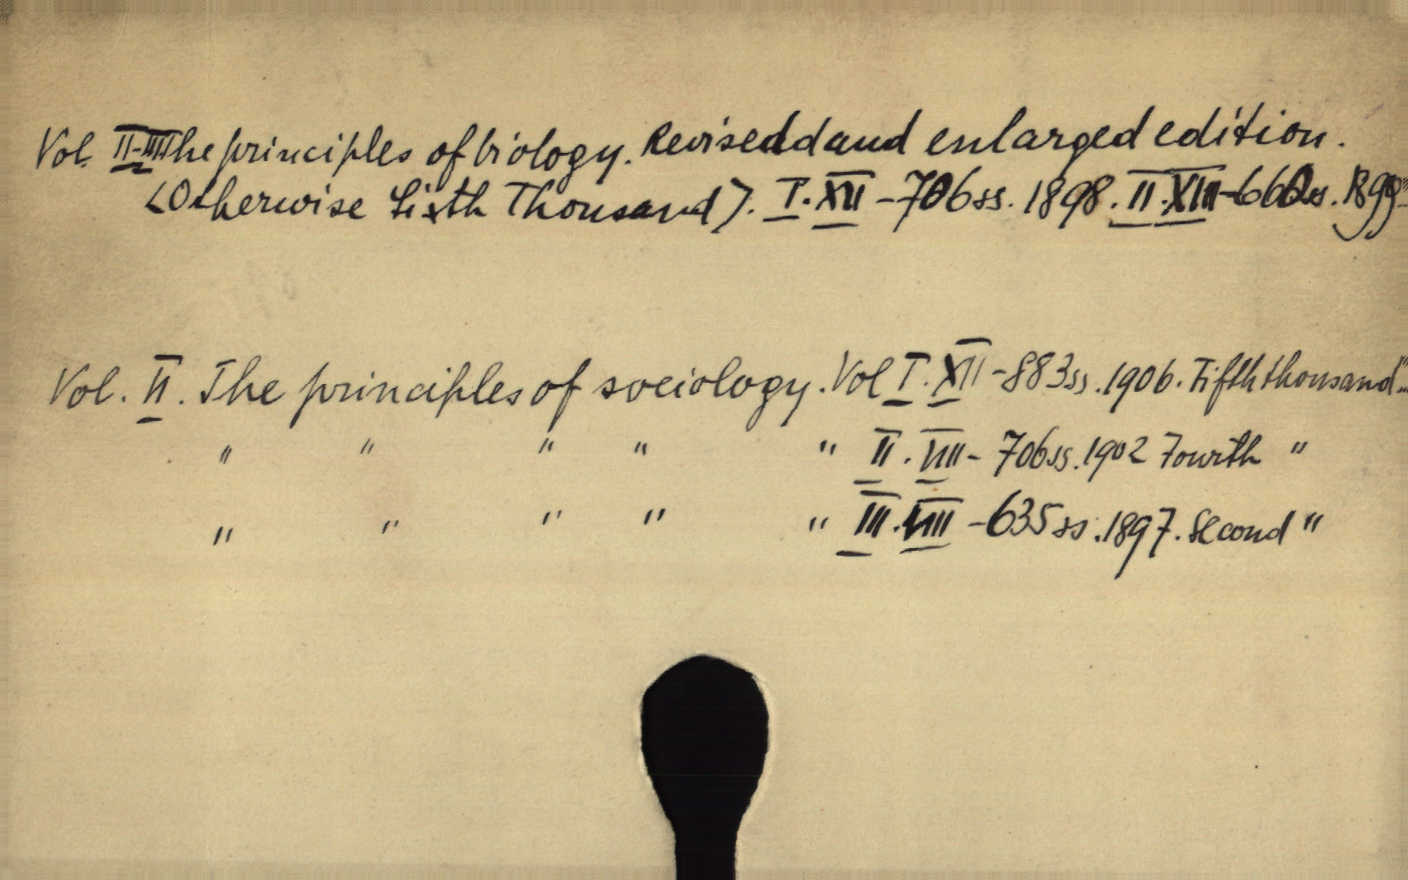 Vol. II-III The principles of biology. Revised and enlarged edition.
(Otherwise Sixth Thousand). I. XII - 706 ss. 1898. II. XIII - 660 ss. 1899
Vol. VI. The principles of sociology. Vol I. XII - 883 ss. 1906. Fifth thousand
" " " " " II. VIII - 706 ss. 1902 Fourth "
" " " " " III. VIII - 635 ss. 1897. Second "